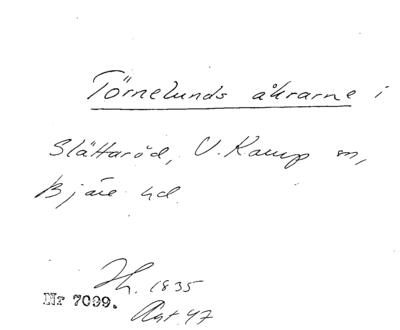 Törnelunds åkrarne i
Slättaröd, V. Karup sn,
Bjäre hd.
Hh. 1835
Nr 7099.
Akt. 47